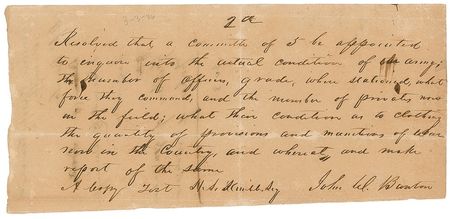 3-3-36
2d
Resolved that a committe of 5 be appointed
to enquire into the actual condition of our army;
the number of officers, grade, where stationed, what
force they command, and the number of privates now
in the field; what their condition as to clothing
the quantity of provisions and munitions of war
now in the Country, and whereat and make
report of the same
A Copy Test H. S. Kimble Sey John W. Bunton